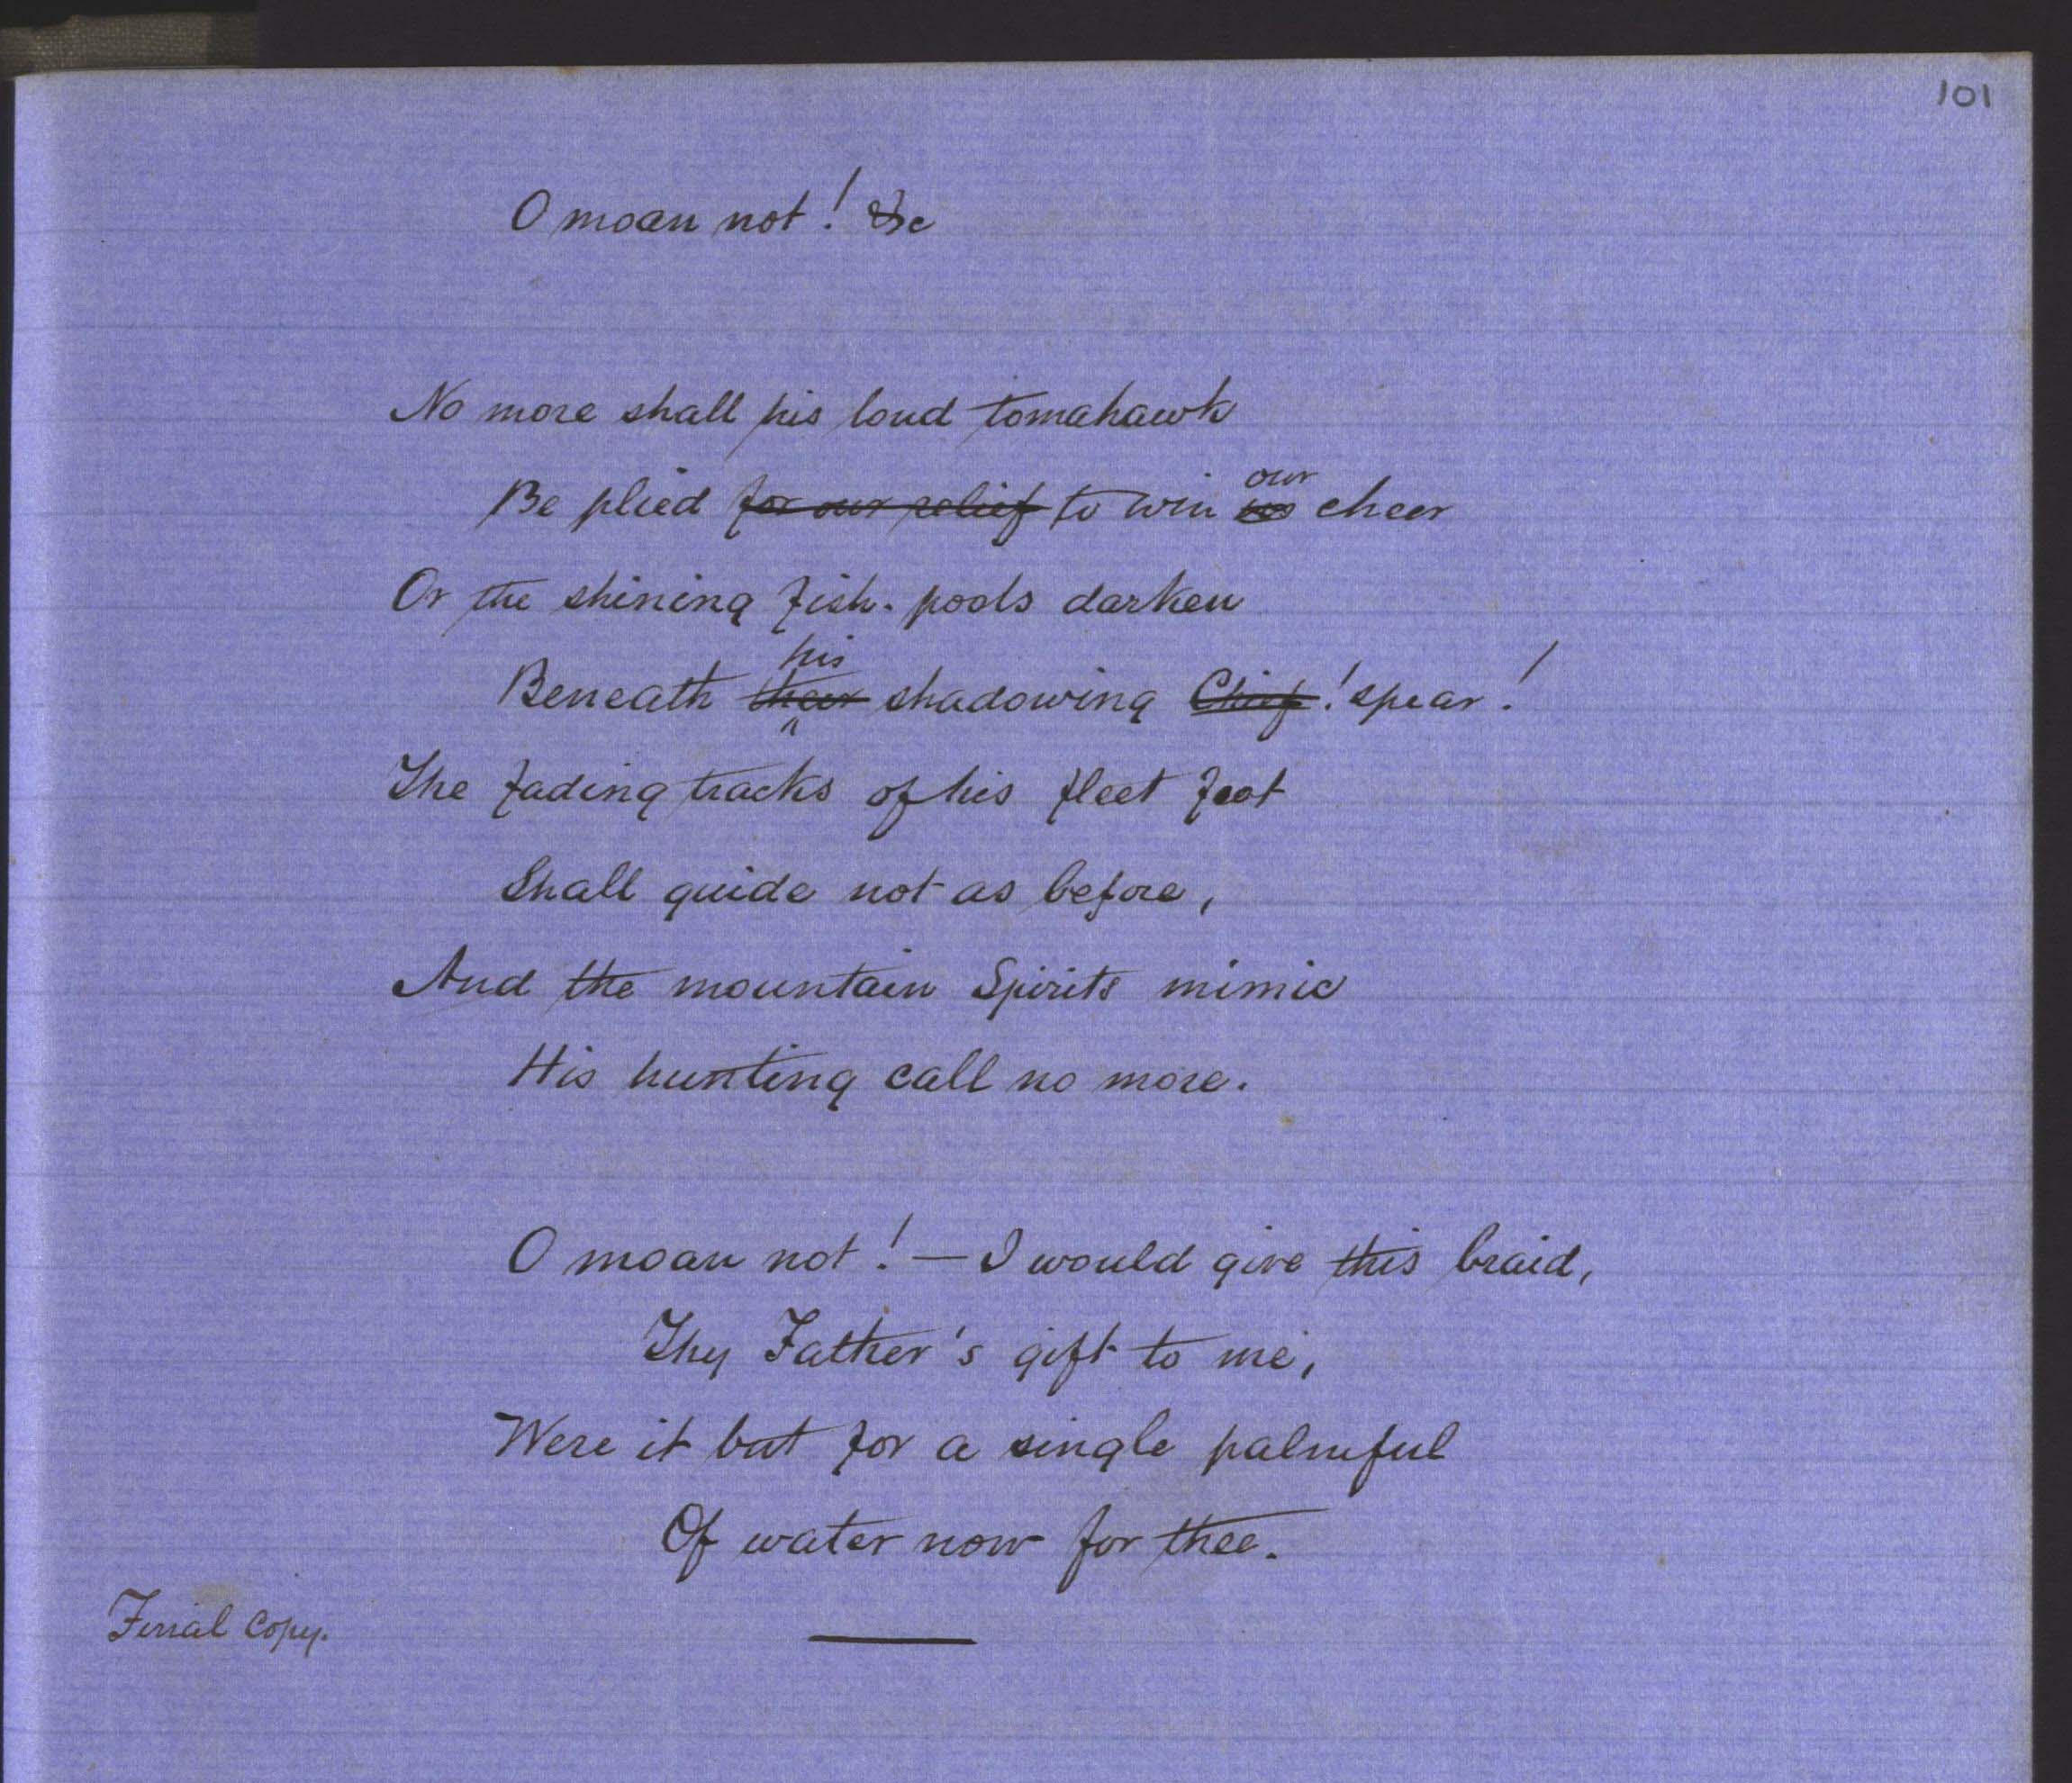 101
O moan not! &c
No more shall his loud tomahawk
Be plied for our relief to win our us cheer
Or the shining fish-pools darken
Beneath his their shadowing Chief! spear!
The fading tracks of his fleet foot
Shall guide not as before,
And the mountain Spirits mimic
His hunting call no more.
O moan not! — I would give this braid,
Thy Father's gift to me,
Were it but for a single palmful
Of water now for thee.
Final Copy.